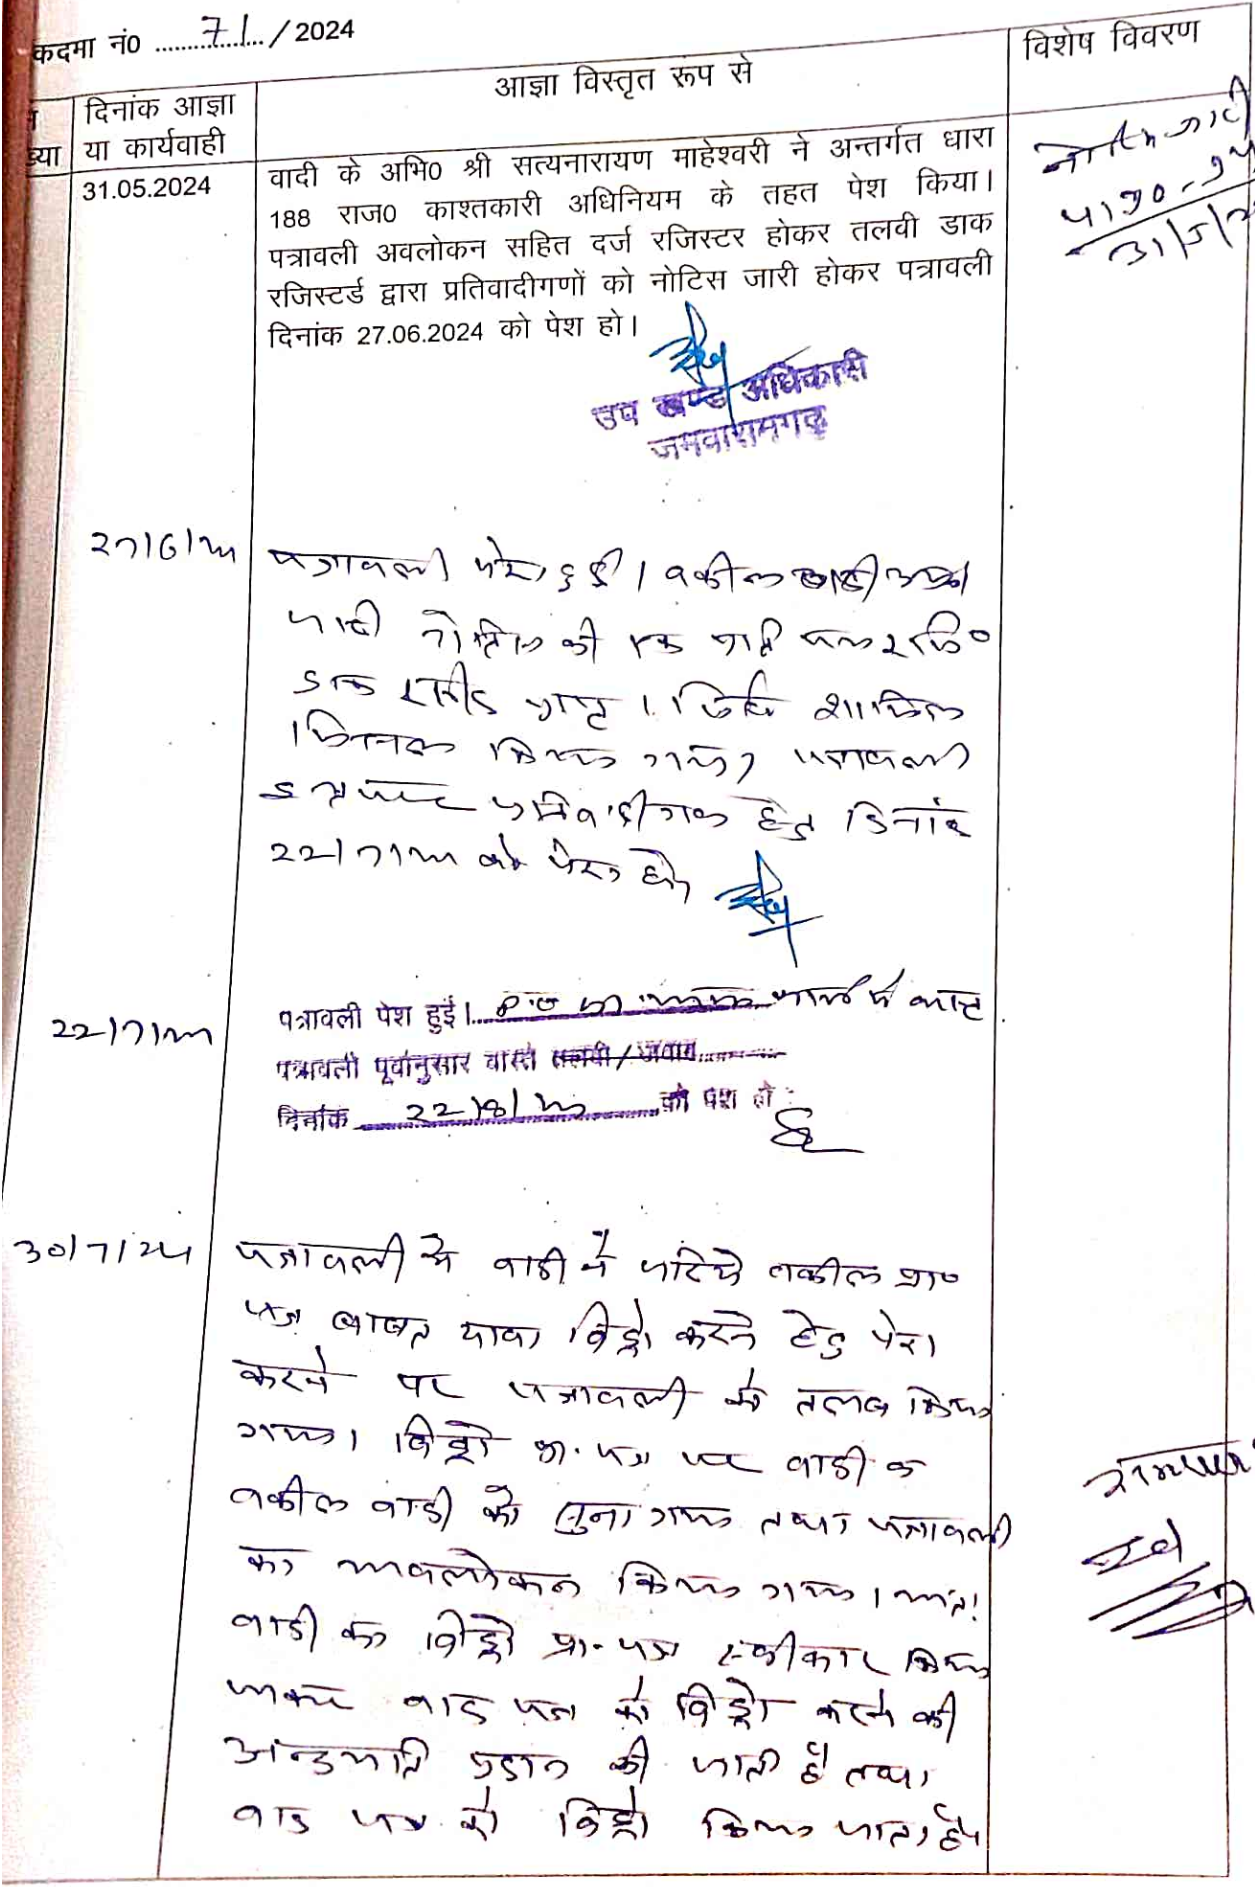 कदमा नं0 ....71..../ 2024
दिनांक आज्ञा
या कार्यवाही
आज्ञा विस्तृत रूप से
विशेष विवरण
ख्या
31.05.2024
वादी के अभि0 श्री सत्यनारायण माहेश्वरी ने अन्तर्गत धारा
188 राज0 काश्तकारी अधिनियम के तहत पेश किया।
पत्रावली अवलोकन सहित दर्ज रजिस्टर होकर तलवी डाक
रजिस्टर्ड द्वारा प्रतिवादीगणों को नोटिस जारी होकर पत्रावली
दिनांक 27.06.2024 को पेश हो।
नोटिस जारी
31/5/
उप खण्ड अधिकारी
जमवारामगढ़
27/6/24
पत्रावली पेश हुई। वकील वादी
नोटिस की एक प्रति
डाक रसीद शामिल
मिसल किया गया। पत्रावली
प्रतिवादीगण हेतु दिनांक
22/7/24 को पेश हो।
22/7/24
पत्रावली पेश हुई।
पत्रावली पूर्वानुसार वास्ते तलवी / जवाब
दिनांक 22/8/24 को पेश हो
30/7/24
पत्रावली में वादी ने जरिये वकील प्रा०
पत्र बाबत दावा विड्रो करने हेतु पेश
करने पर पत्रावली को तलब किया
गया। विड्रो प्रा. पत्र पर वादी व
वकील वादी को सुना गया तथा पत्रावली
का अवलोकन किया गया। अतः
वादी का विड्रो प्रा. पत्र स्वीकार किया
जाकर वाद पत्र को विड्रो करने की
अनुमति प्रदान की जाती है तथा
वाद पत्र को विड्रो किया जाता है।